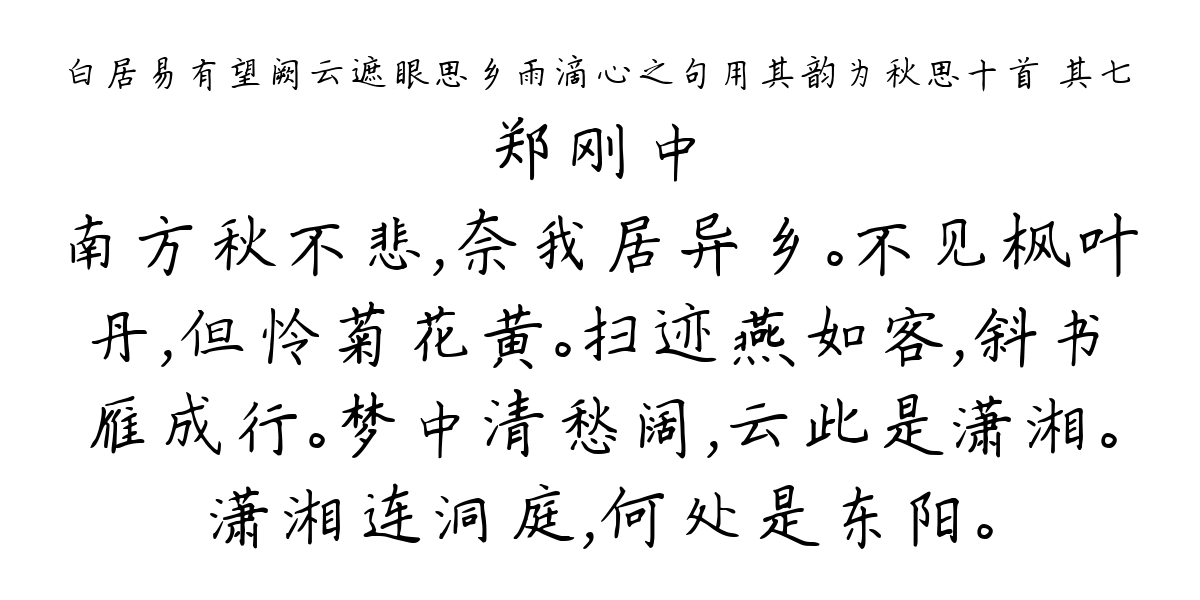 白居易有望阙云遮眼思乡雨滴心之句用其韵为秋思十首 其七
郑刚中
南方秋不悲,奈我居异乡。不见枫叶
丹,但怜菊花黄。扫迹燕如客,斜书
雁成行。梦中清愁阔,云此是潇湘。
潇湘连洞庭,何处是东阳。